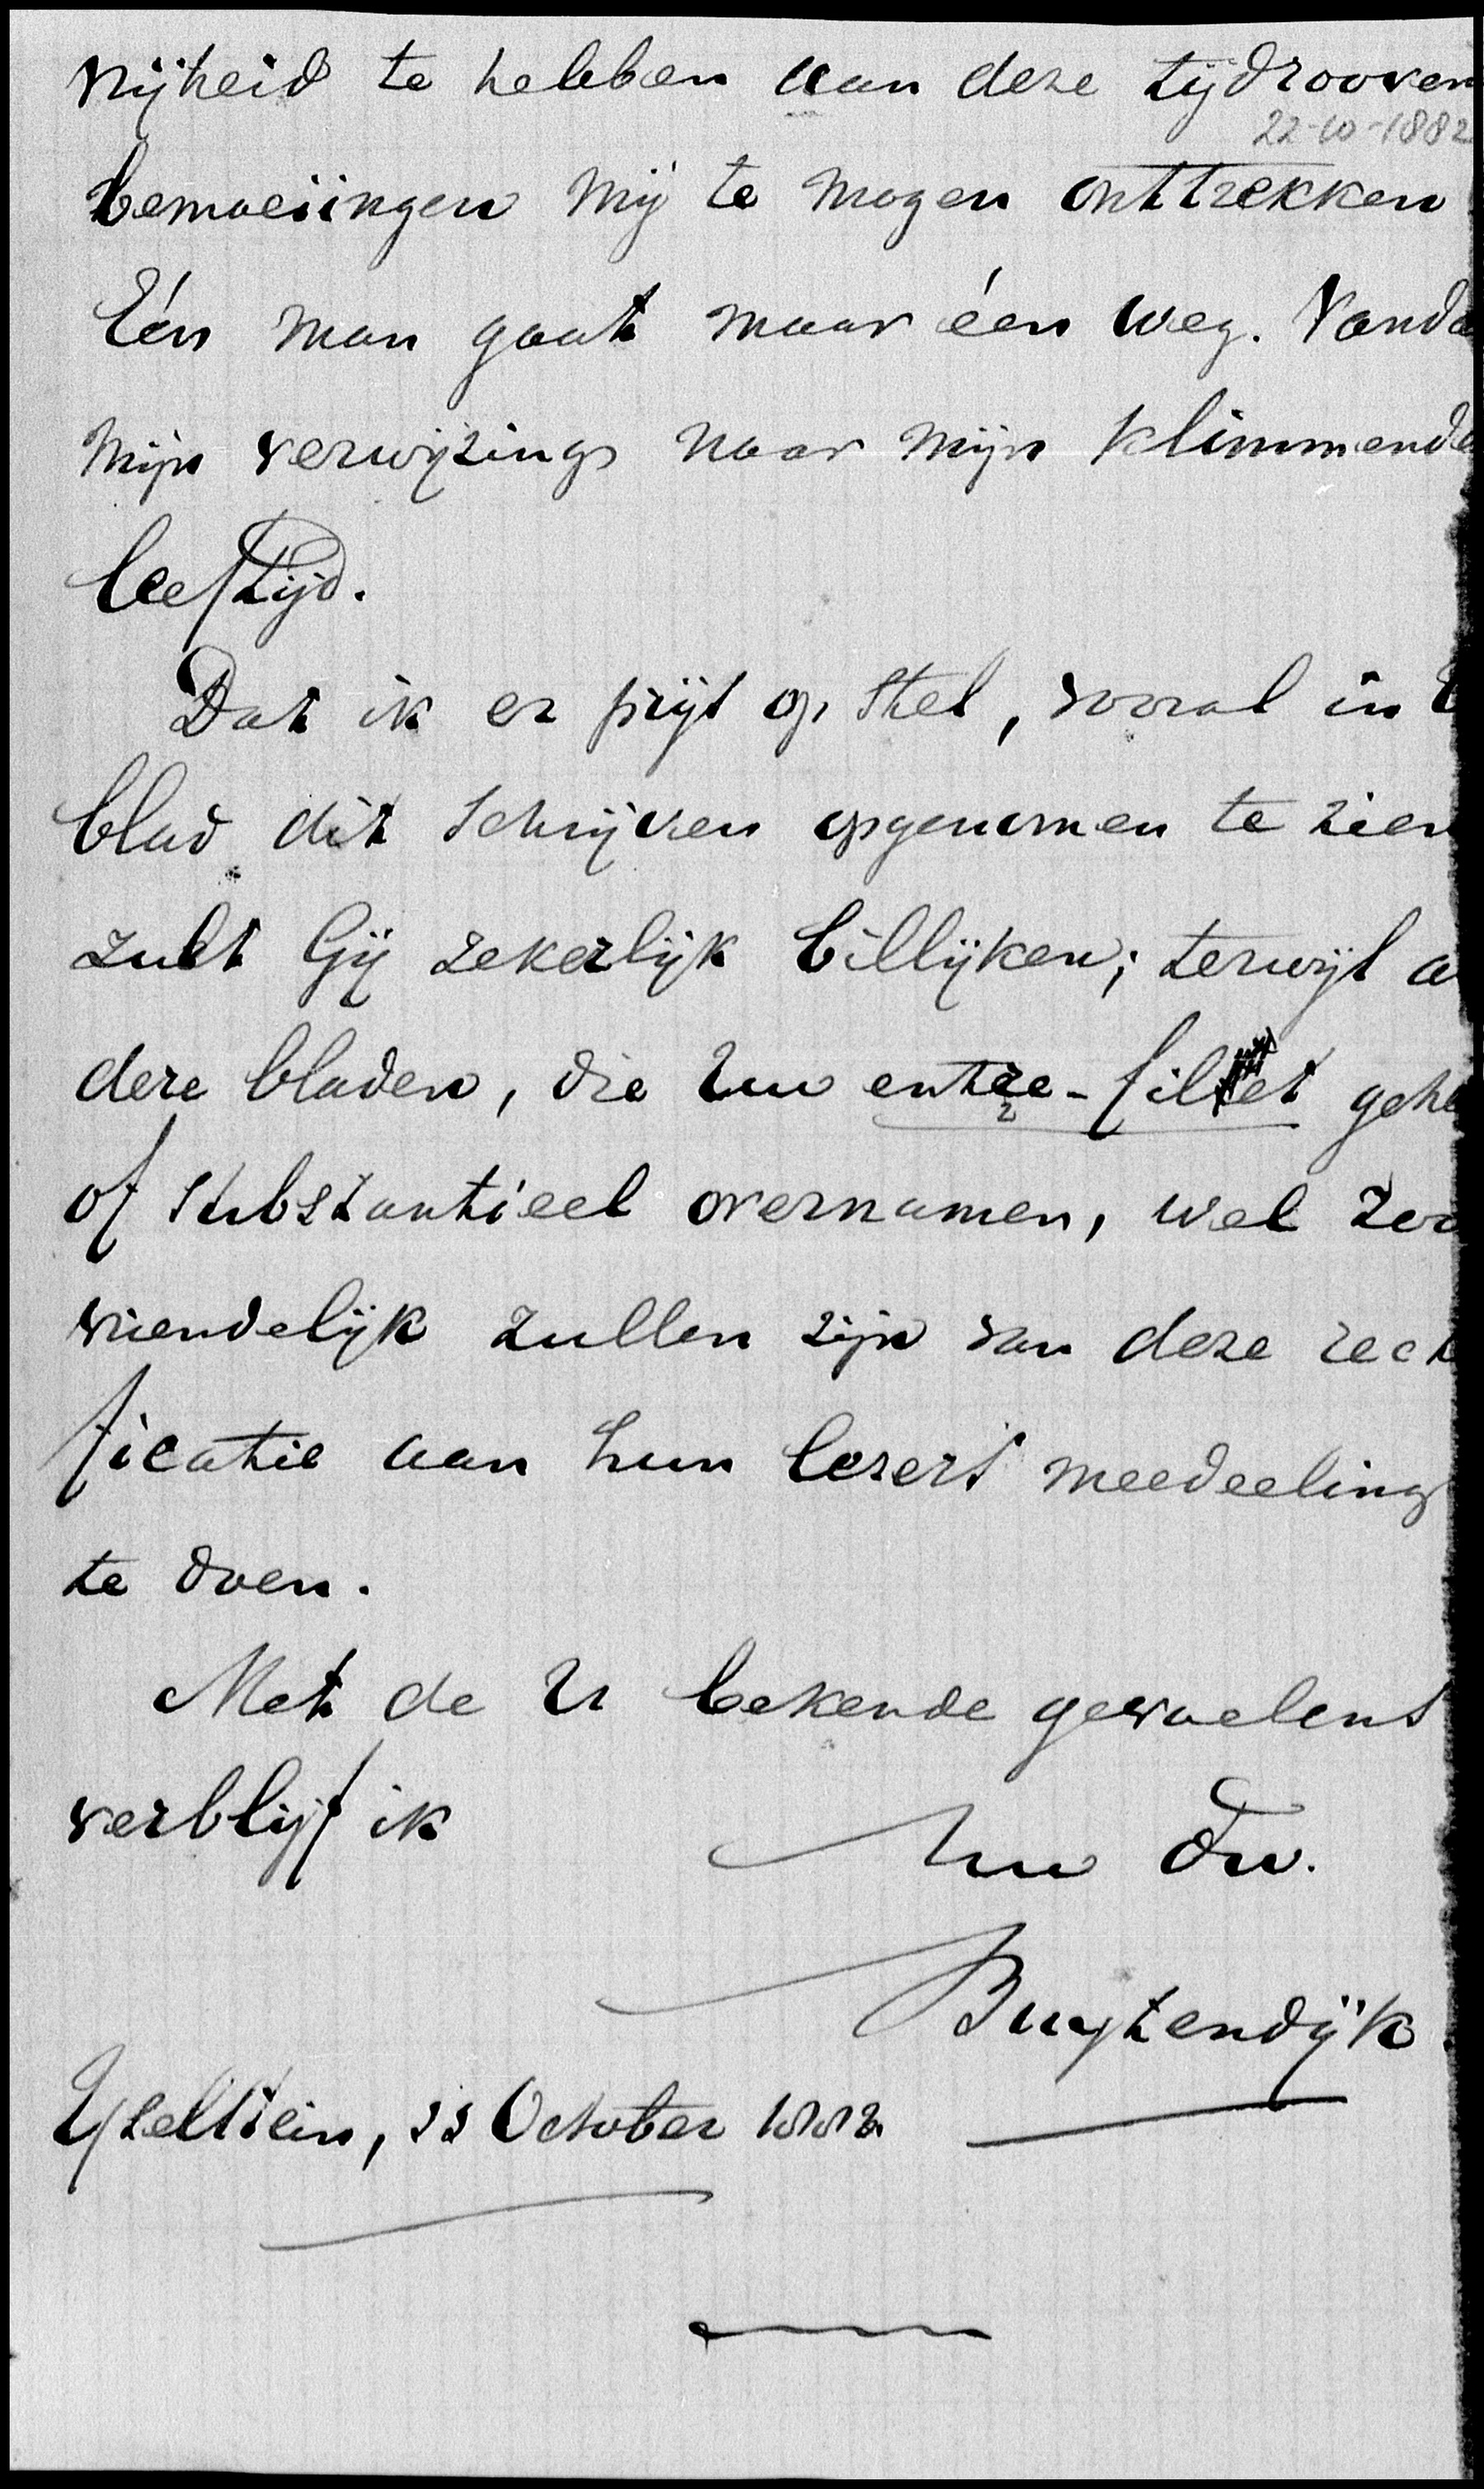 vrijheid te hebben aan deze tijdrooven
22-10-1882
bemoeiingen mij te mogen onttrekken
Eén man gaat maar één weg. Vanda
mijn verwijzing naar mijn klimmende
leeftijd.
Dat ik er prijs op stel, vooral in U
blad dit schrijven opgenomen te zien
zult Gij zekerlijk billijken; terwijl a
dere bladen, die Uw entre-filet gehe
of substantieel overnamen, wel zoo
vriendelijk zullen zijn van deze rect
ficatie aan hun lezers meedeeling
te doen.
Met de U bekende gevoelens
verblijf ik
Uw Dw.
Buytendijk.
Yselstein, 22 October 1882.